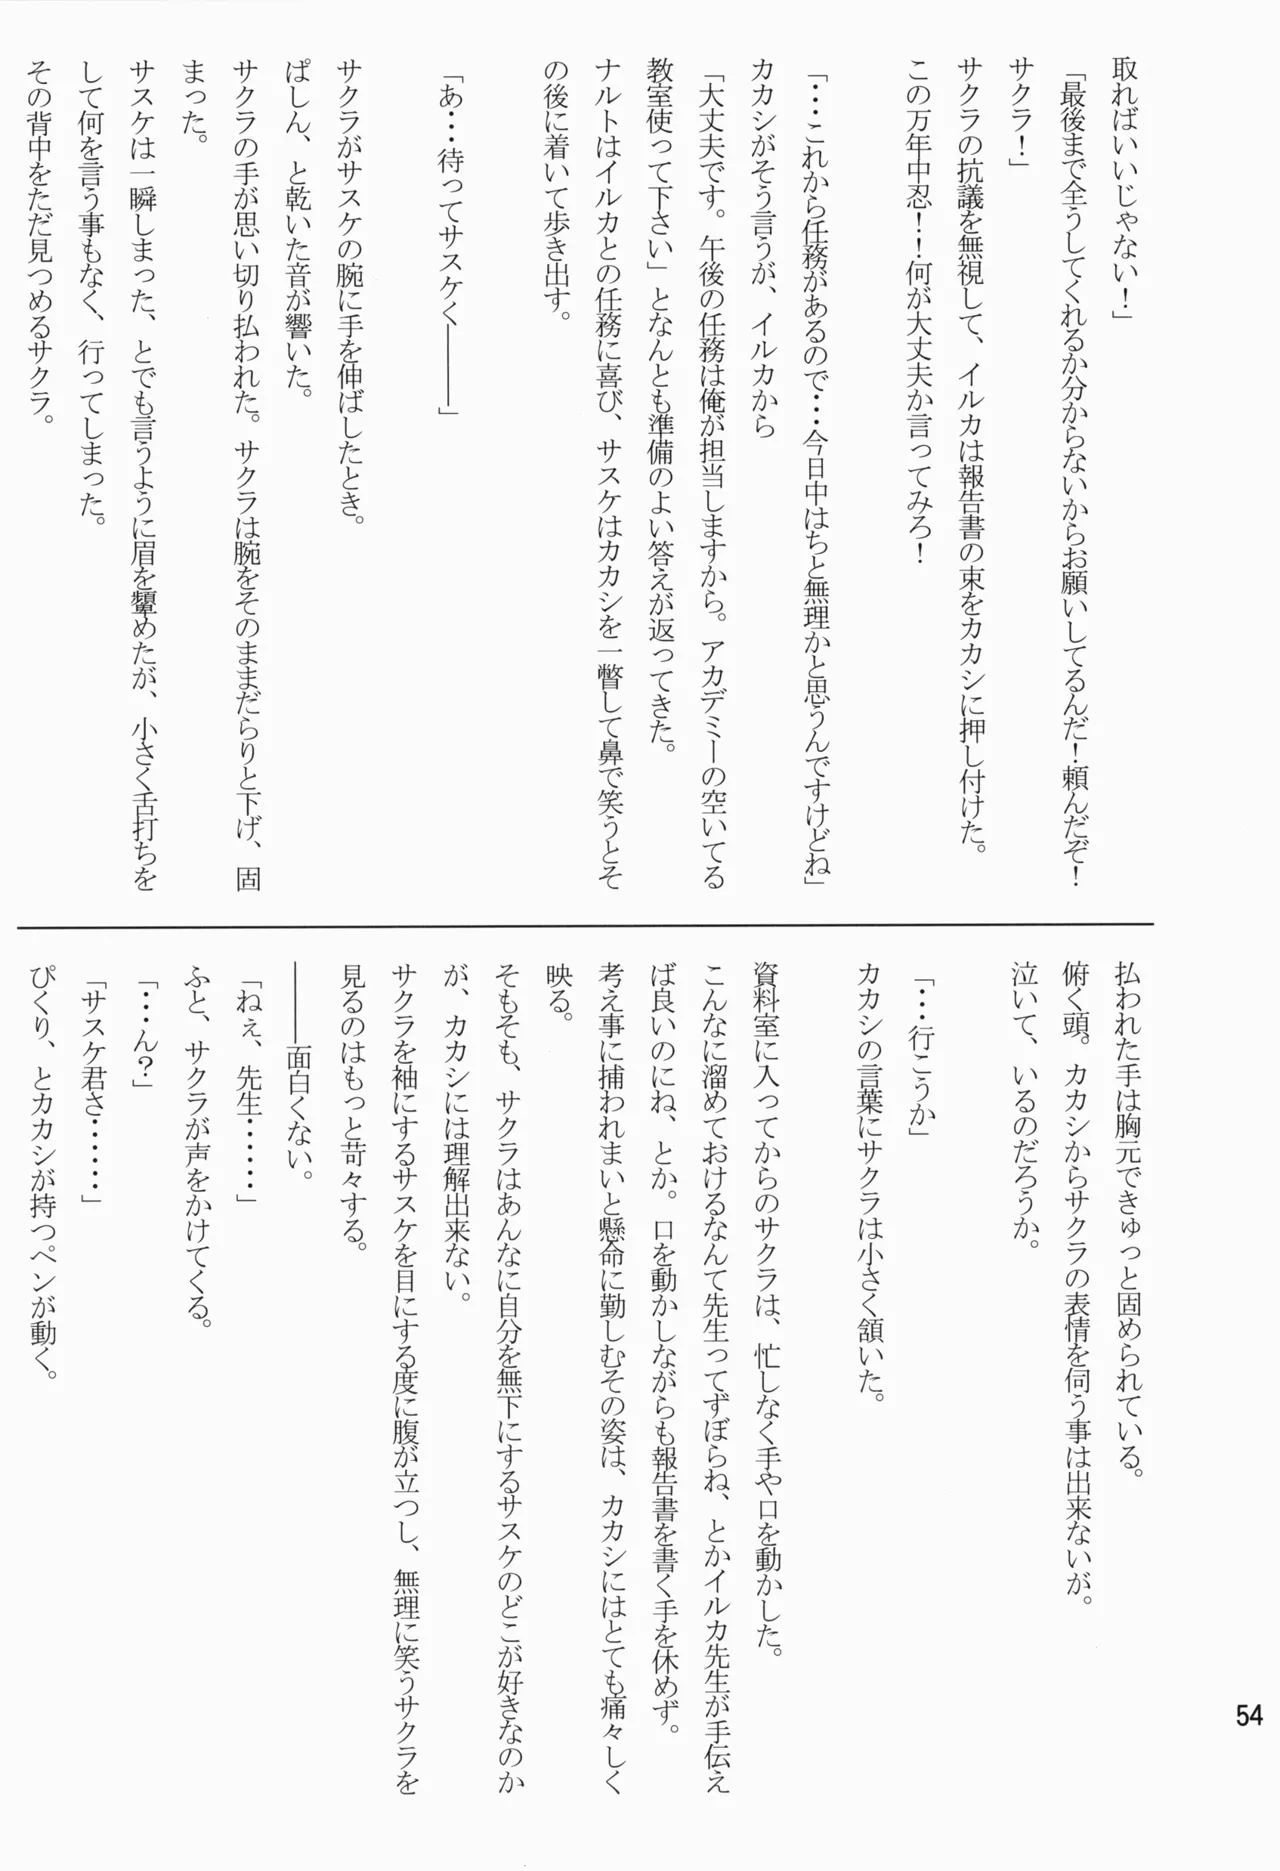 取ればいいじゃない！」
「最後まで全うしてくれるか分からないからお願いしてるんだ！頼んだぞ！
サクラ！」
サクラの抗議を無視して、イルカは報告書の束をカカシに押し付けた。
この万年中忍！！何が大丈夫か言ってみろ！
「・・・これから任務があるので・・・今日中はちと無理かと思うんですけどね」
カカシがそう言うが、イルカから
「大丈夫です。午後の任務は俺が担当しますから。アカデミーの空いてる
教室使って下さい」となんとも準備のよい答えが返ってきた。
ナルトはイルカとの任務に喜び、サスケはカカシを一瞥して鼻で笑うとそ
の後に着いて歩き出す。
「あ・・・待ってサスケく――――」
サクラがサスケの腕に手を伸ばしたとき。
ぱしん、と乾いた音が響いた。
サクラの手が思い切り払われた。サクラは腕をそのままだらりと下げ、固
まった。
サスケは一瞬しまった、とでも言うように眉を顰めたが、小さく舌打ちを
して何を言う事もなく、行ってしまった。
その背中をただ見つめるサクラ。
払われた手は胸元できゅっと固められている。
俯く頭。カカシからサクラの表情を伺う事は出来ないが。
泣いて、いるのだろうか。
「・・・行こうか」
カカシの言葉にサクラは小さく頷いた。
資料室に入ってからのサクラは、忙しなく手や口を動かした。
こんなに溜めておけるなんて先生ってずぼらね、とかイルカ先生が手伝え
ば良いのにね、とか。口を動かしながらも報告書を書く手を休めず。
考え事に捕われまいと懸命に勤しむその姿は、カカシにはとても痛々しく
映る。
そもそも、サクラはあんなに自分を無下にするサスケのどこが好きなのか
が、カカシには理解出来ない。
サクラを袖にするサスケを目にする度に腹が立つし、無理に笑うサクラを
見るのはもっと苛々する。
――――面白くない。
「ねぇ、先生・・・・・・」
ふと、サクラが声をかけてくる。
「・・・ん？」
「サスケ君さ・・・・・・」
ぴくり、とカカシが持つペンが動く。
54